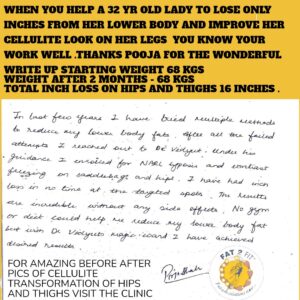 WHEN YOU HELP A 32 YR OLD LADY TO LOSE ONLY
INCHES FROM HER LOWER BODY AND IMPROVE HER
CELLULITE LOOK ON HER LEGS YOU KNOW YOUR
WORK WELL .THANKS POOJA FOR THE WONDERFUL
WRITE UP STARTING WEIGHT 68 KGS
WEIGHT AFTER 2 MONTHS - 68 KGS
TOTAL INCH LOSS ON HIPS AND THIGHS 16 INCHES .
In last few years I have tried multiple methods
to reduce my lower body fats. After all the failed
attempts I reached out to Dr. Vidyut. Under his
guidance I enrolled for and
freezing on saddlebags and hips. I have had inch
loss in no time at the targeted spots. The results
are incredible without any side effects. No gym
or diet could help me reduce my lower body fat
but with Dr. Vidyut's magic wand I have achieved
desired results.
FAT 2 FIT
FOR AMAZING BEFORE AFTER
PICS OF CELLULITE
TRANSFORMATION OF HIPS
AND THIGHS VISIT THE CLINIC